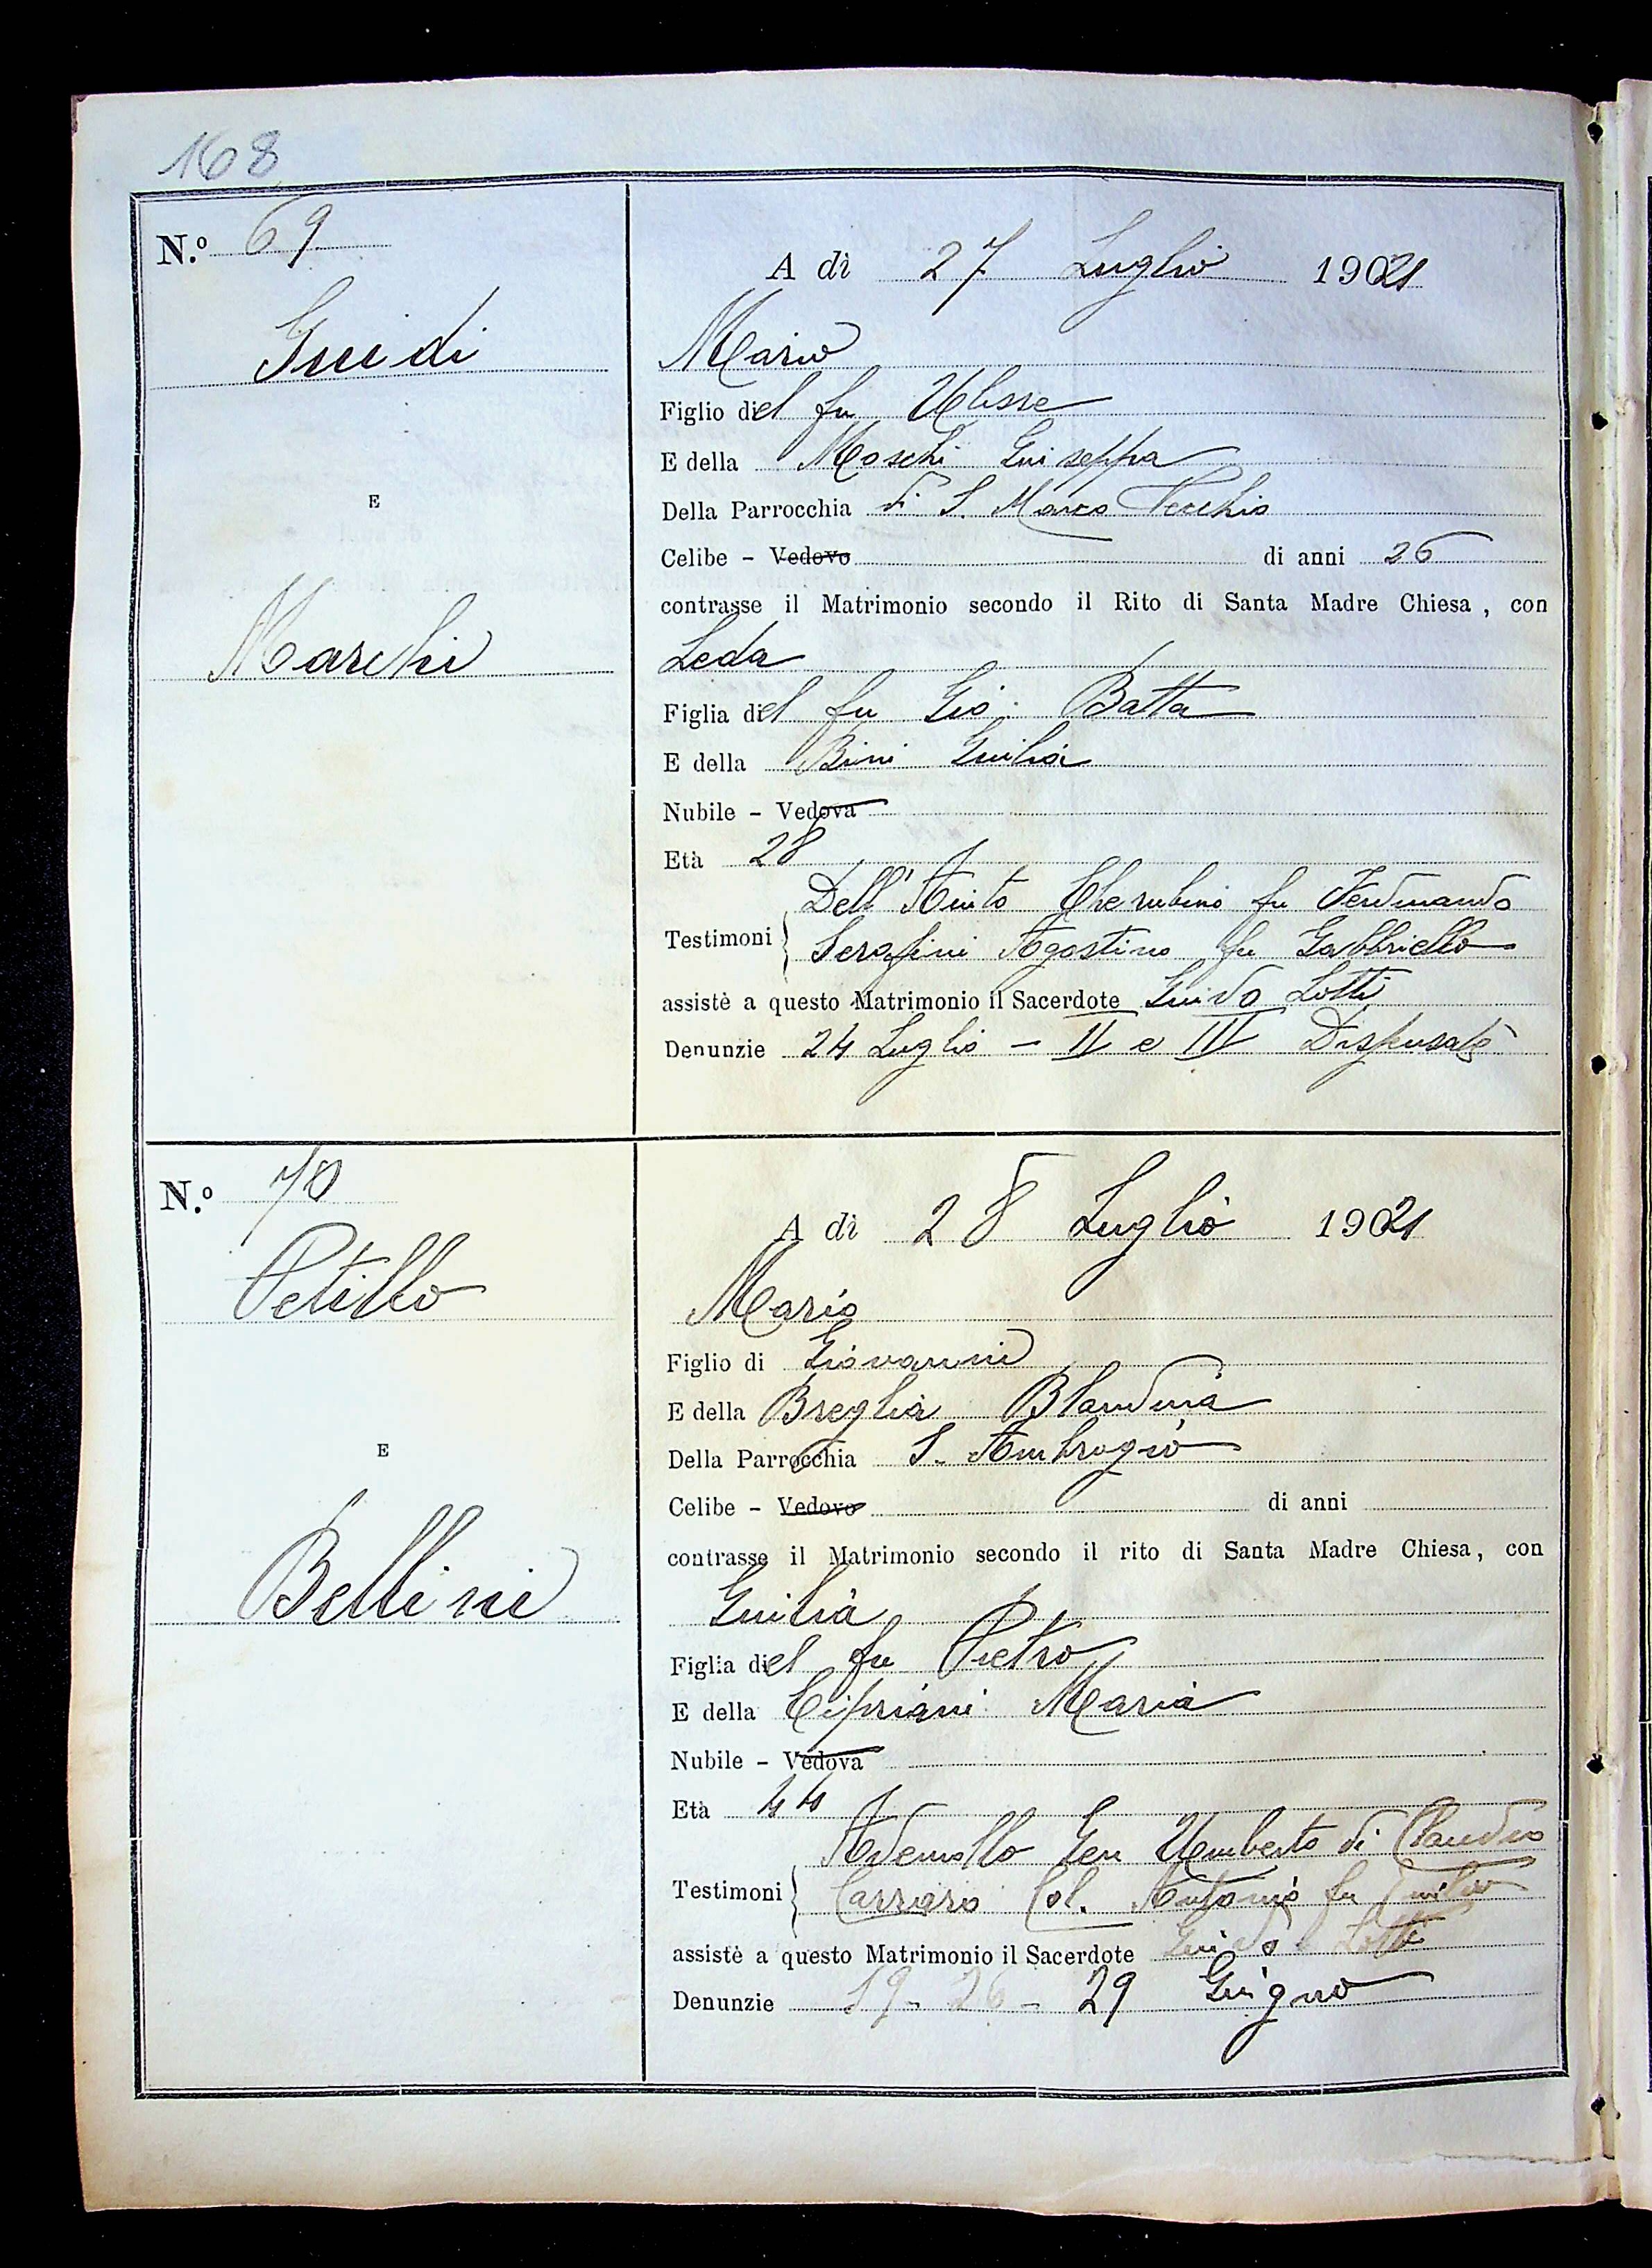 168
N.º 69
A dì 27 Luglio 1921
Guidi
Mario
Figlio del fu Ulisse
E della Moschi Giuseppa
Della Parrocchia di S. Marco Vecchio
E
Celibe - Vedovo di anni 26
contrasse il Matrimonio secondo il Rito di Santa Madre Chiesa, con
Marchi
Leda
Figlia del fu Gio. Batta
E della Bini Giulia
Nubile - Vedova
Età 28
Dell'Aiuto Cherubino fu Ferdinando
Testimoni Serafini Agostino fu Gabbriello
assistè a questo Matrimonio il Sacerdote Guido Lotti
Denunzie 24 Luglio - II e III Dispensate
N.º 70
A dì 28 Luglio 1921
Petillo
Mario
Figlio di Giovanni
E della Breglia Blandina
Della Parrocchia S. Ambrogio
E
Celibe - Vedovo di anni
contrasse il Matrimonio secondo il rito di Santa Madre Chiesa, con
Bellini
Giulia
Figlia del fu Pietro
E della Cipriani Maria
Nubile - Vedova
Età 44
Ademollo Gen Umberto di Claudio
Testimoni Carraro Col. Antonio fu Emilio
assistè a questo Matrimonio il Sacerdote Guido Lotti
Denunzie 19 - 26 - 29 Giugno